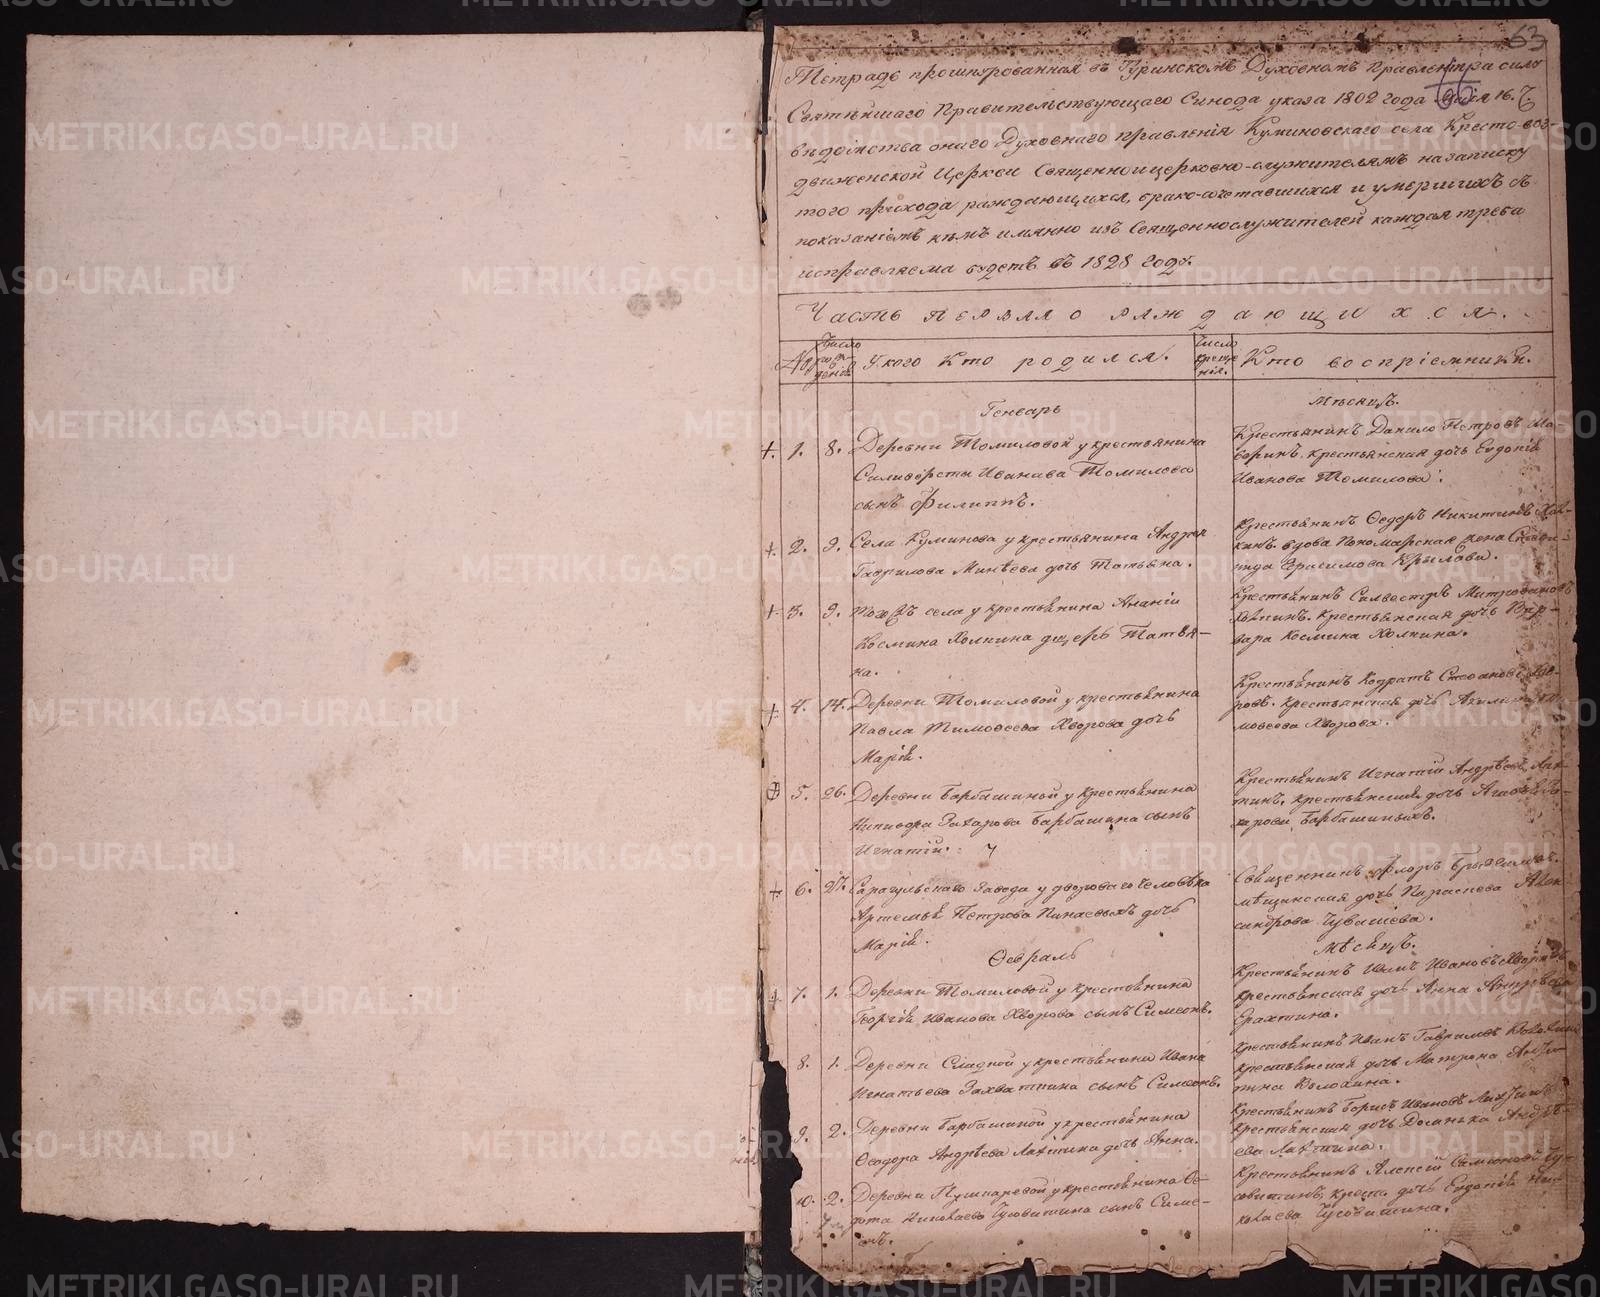 63
66
Тетрадь прошнурованная въ Туринскомъ Духовномъ Правленіи на силу
Святѣйшаго Правительствующаго Синода указа 1802 года 16.
вѣдомства онаго Духовнаго правленія Куминовскаго села Кресто-воз-
движенской Церкви Священноицерковно-служителямъ на записку
того прихода раждающихся, брако-сочетавшихся и умершихъ съ
показаніемъ кѣмъ имянно изъ Священнослужителей каждая треба
исправляема будетъ въ 1828 году.
Часть первая о раждающихся.
№ Число рожденій У кого кто родился. Число крещенія. Кто воспріемники.
Генварь Мѣсяцъ.
1. 8. Деревни Томиловой у крестьянина
Силиверста Иванова Томилова
сынъ Филиппъ.
Крестьянинъ Данило Петровъ
крестьянская дочь Евдокія
Иванова Томилова.
2. 9. Села Куминова у крестьянина Андрея
Гаврилова Минѣева дочь Татьяна.
Крестьянинъ Ѳедоръ Никитинъ
вдова Пономарская жена
Герасимова Крылова.
3. 9. Тогожъ села у крестьянина Ананіи
Космина Холкина дщерь Татья-
на.
Крестьянинъ Силвестръ Митрофановъ
крестьянская дочь Вар-
вара Космина Холкина.
4. 14. Деревни Томиловой у крестьянина
Павла Тимоѳеева Хворова дочь
Марія.
Крестьянинъ Кодратъ Стефановъ Хво-
ровъ. крестьянская дочь Акилина Ти-
моѳеева Хворова.
5. 26. Деревни Барбашиной у крестьянина
Никифора Захарова Барбашина сынъ
Игнатій.
Крестьянинъ Игнатій Андрѣевъ Лах-
тинъ, крестьянская дочь Агафья За-
харова Барбашиныхъ.
6. 27. Сарагульскаго Завода у двороваго человѣка
Артемья Петрова Пинаевыхъ дочь
Марія.
Священникъ Флоръ
мѣщанская дочь Параскева Алек-
сандрова Чувашева.
Февраль Мѣсяцъ.
7. 1. Деревни Томиловой у крестьянина
Георгія Иванова Хворова сынъ Симеонъ.
Крестьянинъ Илія Ивановъ Хворовъ
крестьянская дочь Анна Андрѣева
Лахтина.
8. 1. Деревни Сладкой у крестьянина Ивана
Игнатьева Захваткина сынъ Симеонъ.
Крестьянинъ Иванъ Гавриловъ
крестьянская дочь Матрона
Волохина.
9. 2. Деревни Барбашиной у крестьянина
Ѳеодора Андрѣева Лахтина дочь Анна.
Крестьянинъ Борисъ Ивановъ Лахтинъ
крестьянская дочь Домника Андрѣ-
ева Лахтина.
10. 2. Деревни Пушкаревой у крестьянина Ѳе-
дота Николаева Чусовитина сынъ Симе-
онъ.
Крестьянинъ Алексій Симеоновъ Чу-
совитинъ, крест. дочь Евдокія Ни-
колаева Чусовитина.
METRIKI.GASO-URAL.RU